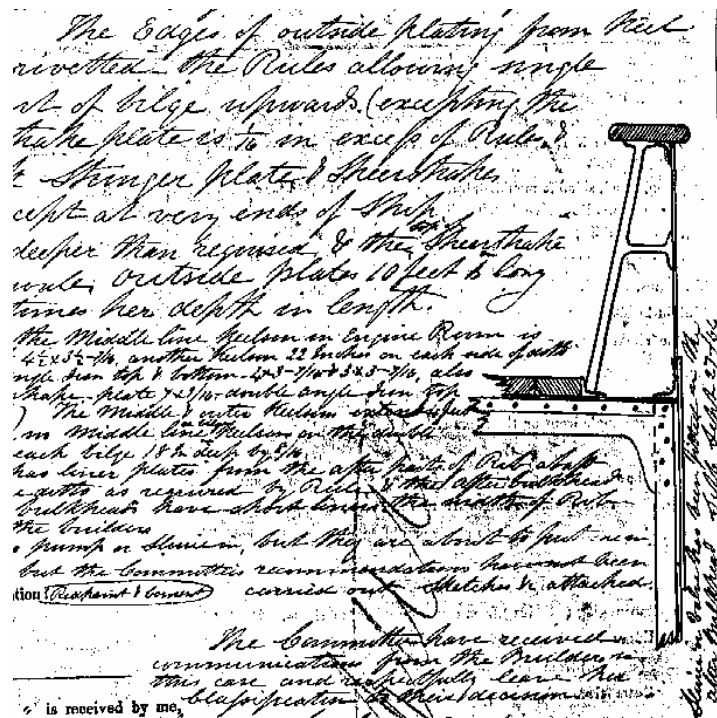 The Edges of outside plating from Keel
rivetted the Rules allowing single
rt of bilge upwards. (excepting the
trake plate is 1/16 in excess of Rule, &
& Stringer plate & Sheerstrakes
cept at very ends of Ship
deeper than required & the top of Sheerstrake
wale, outside plates 10 feet & long
times her depth in length.
the Middle line Keelson in Engine Room is
another Keelson 22 Inches on each side of ditto
ngle Iron top & bottom also
plate double angle Iron top
) The Middle & outer Keelsons
in Middle line Keelson on the double
each bilge 18 In deep by
has liner plates from the after part of Rib, abaft
e ditto as required by Rule & the after bulkhead
bulkheads have short liners the width of Rib.
the builders
pump or Sluice in, but they are about to put em
but the Committee's recommendations have not been
tion? Red paint & Cement carried out. Sketches &c attached.
The Committee have received a
communication from the Builders re
this case and respectfully leave her
Classification to their decision
is received by me,
Sluice in Bulkhd has been placed in the
after Bulkhead Sept